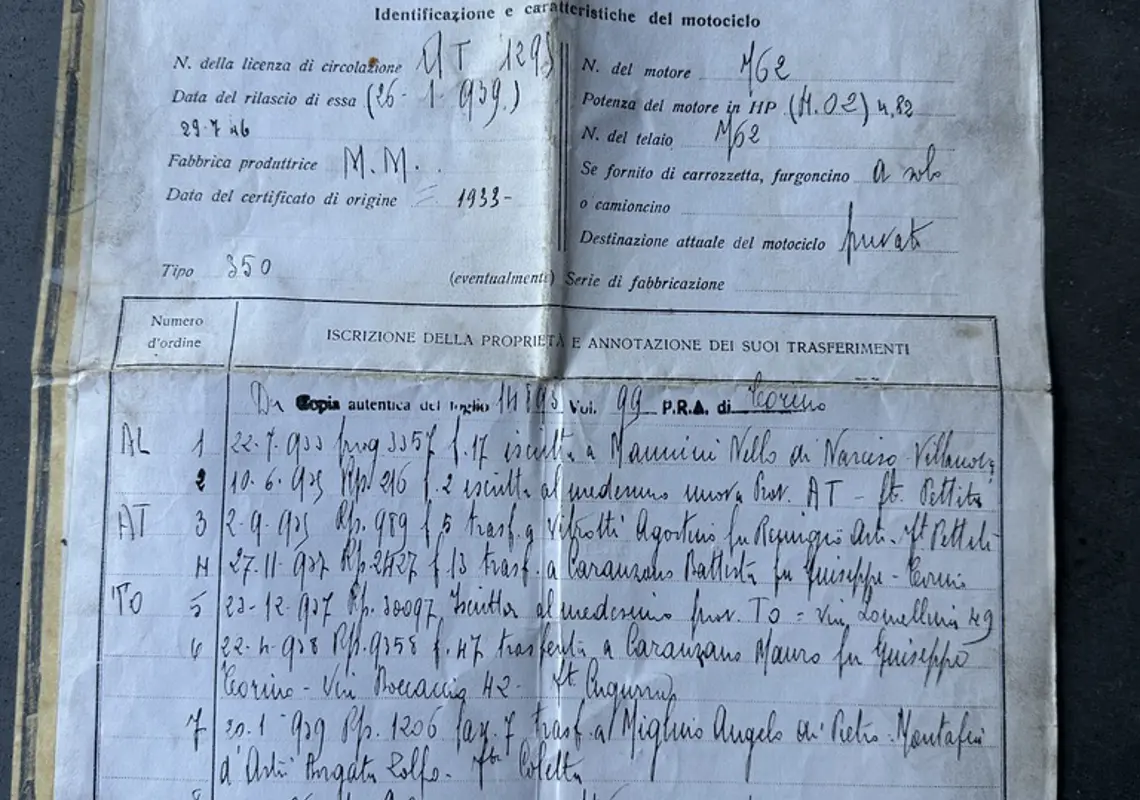 Identificazione e caratteristiche del motociclo
N. della licenza di circolazione AT 1293
Data del rilascio di essa (26-1-939.)
29-7 46
Fabbrica produttrice M.M.
Data del certificato di origine = 1933-
Tipo 350
N. del motore M62
Potenza del motore in HP (4.02) 4,82
N. del telaio M62
Se fornito di carrozzetta, furgoncino a solo
o camioncino
Destinazione attuale del motociclo privati
(eventualmente) Serie di fabbricazione
Numero d'ordine
ISCRIZIONE DELLA PROPRIETÀ E ANNOTAZIONE DEI SUOI TRASFERIMENTI
Da Copia autentica del foglio Vol. 99 P.R.A. di Torino
AL 1 22-7-933 prog 3357 f.17 iscritta a Mannini Nello di Narciso Villanova
2 10-6-935 Rp. 216 f.2 iscritta al medesimo nuova Prov. AT - ft.
AT 3 2-9-935 Rp. 989 f 5 trasf. a Agostino fu Remigio Asti - ft
4 27-11-937 Rp. 2427 f.13 trasf. a Caranzano Battista fu Guiseppe - Torino
TO 5 23-12-937 Rp. 30097 Iscritta al medesimo prov. TO = Via Lomellina 49
6 22-4-938 Rp. 9358 f.47 trasferita a Caranzano Mauro fu Guiseppe
Torino - Via Boccaccio 42 - ft
7 20-1-939 Rp. 1206 fag. 7 trasf. a Migliio Angelo di Pietro - Montafia
d'Asti ft Coletta